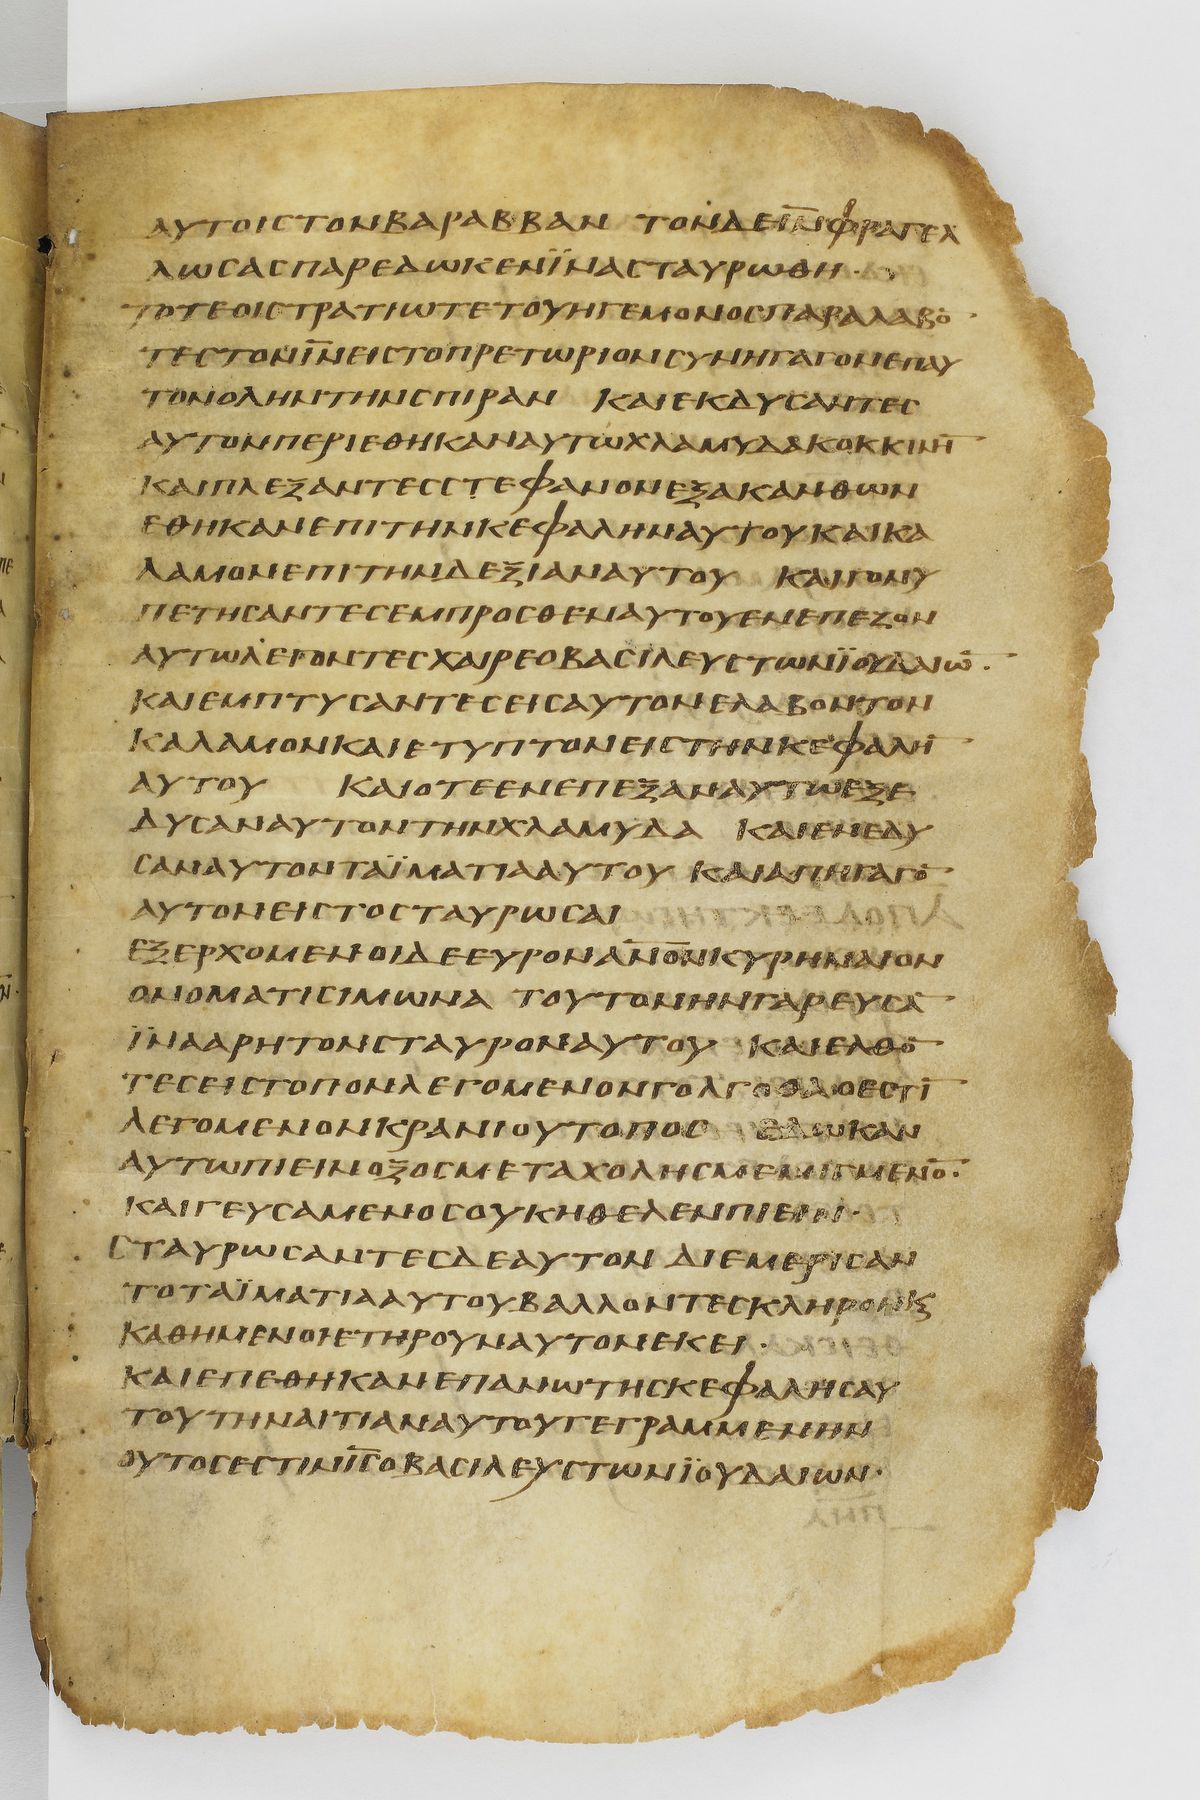 ΑΥΤΟΙΣΤΟΝΒΑΡΑΒΒΑΝ ΤΟΝΔΕΙ̅Ν̅ΦΡΑΓΕΛ
ΛΩΣΑΣΠΑΡΕΔΩΚΕΝΪΝΑΣΤΑΥΡΩΘΗ·
ΤΟΤΕΟΙΣΤΡΑΤΙΩΤΕΤΟΥΗΓΕΜΟΝΟΣΠΑΡΑΛΑΒΟ̅
ΤΕΣΤΟΝΙ̅Ν̅ΕΙΣΤΟΠΡΕΤΩΡΙΟΝΣΥΝΗΓΑΓΟΝΕΠΑΥ
ΤΟΝΟΛΗΝΤΗΝΣΠΙΡΑΝ ΚΑΙΕΚΔΥΣΑΝΤΕΣ
ΑΥΤΟΝΠΕΡΙΕΘΗΚΑΝΑΥΤΩΧΛΑΜΥΔΑΚΟΚΚΙΝΗ̅
ΚΑΙΠΛΕΞΑΝΤΕΣΣΤΕΦΑΝΟΝΕΞΑΚΑΝΘΩΝ
ΕΘΗΚΑΝΕΠΙΤΗΝΚΕΦΑΛΗΝΑΥΤΟΥΚΑΙΚΑ
ΛΑΜΟΝΕΠΙΤΗΝΔΕΞΙΑΝΑΥΤΟΥ ΚΑΙΓΟΝΥ
ΠΕΤΗΣΑΝΤΕΣΕΜΠΡΟΣΘΕΝΑΥΤΟΥΕΝΕΠΕΖΟΝ
ΑΥΤΩΛΕΓΟΝΤΕΣΧΑΙΡΕΟΒΑΣΙΛΕΥΣΤΩΝΪΟΥΔΑΙΩ̅·
ΚΑΙΕΜΠΤΥΣΑΝΤΕΣΕΙΣΑΥΤΟΝΕΛΑΒΟΝΤΟΝ
ΚΑΛΑΜΟΝΚΑΙΕΤΥΠΤΟΝΕΙΣΤΗΝΚΕΦΑΛΗ̅
ΑΥΤΟΥ ΚΑΙΟΤΕΕΝΕΠΕΞΑΝΑΥΤΩΕΞΕ
ΔΥΣΑΝΑΥΤΟΝΤΗΝΧΛΑΜΥΔΑ ΚΑΙΕΝΕΔΥ
ΣΑΝΑΥΤΟΝΤΑΪΜΑΤΙΑΑΥΤΟΥ ΚΑΙΑΠΗΓΑΓΟ̅
ΑΥΤΟΝΕΙΣΤΟΣΤΑΥΡΩΣΑΙ
ΕΞΕΡΧΟΜΕΝΟΙΔΕΕΥΡΟΝΑ̅Ν̅Ο̅Ν̅ΚΥΡΗΝΑΙΟΝ
ΟΝΟΜΑΤΙΣΙΜΩΝΑ ΤΟΥΤΟΝΗΝΓΑΡΕΥΣΑ̅
ΪΝΑΑΡΗΤΟΝΣΤΑΥΡΟΝΑΥΤΟΥ ΚΑΙΕΛΘΟ̅
ΤΕΣΕΙΣΤΟΠΟΝΛΕΓΟΜΕΝΟΝΓΟΛΓΟΘΑΟΕΣΤΙ̅
ΛΕΓΟΜΕΝΟΝΚΡΑΝΙΟΥΤΟΠΟΣ ΕΔΩΚΑΝ
ΑΥΤΩΠΙΕΙΝΟΞΟΣΜΕΤΑΧΟΛΗΣΜΕΜΙΓΜΕΝΟ̅·
ΚΑΙΓΕΥΣΑΜΕΝΟΣΟΥΚΗΘΕΛΕΝΠΙΕΙΝ·
ΣΤΑΥΡΩΣΑΝΤΕΣΔΕΑΥΤΟΝ ΔΙΕΜΕΡΙΣΑΝ
ΤΟΤΑΪΜΑΤΙΑΑΥΤΟΥΒΑΛΛΟΝΤΕΣΚΛΗΡΟΝϗ
ΚΑΘΗΜΕΝΟΙΕΤΗΡΟΥΝΑΥΤΟΝΕΚΕΙ·
ΚΑΙΕΠΕΘΗΚΑΝΕΠΑΝΩΤΗΣΚΕΦΑΛΗΣΑΥ
ΤΟΥΤΗΝΑΙΤΙΑΝΑΥΤΟΥΓΕΓΡΑΜΜΕΝΗΝ
ΟΥΤΟΣΕΣΤΙΝΙ̅Σ̅ΟΒΑΣΙΛΕΥΣΤΩΝΪΟΥΔΑΙΩΝ·